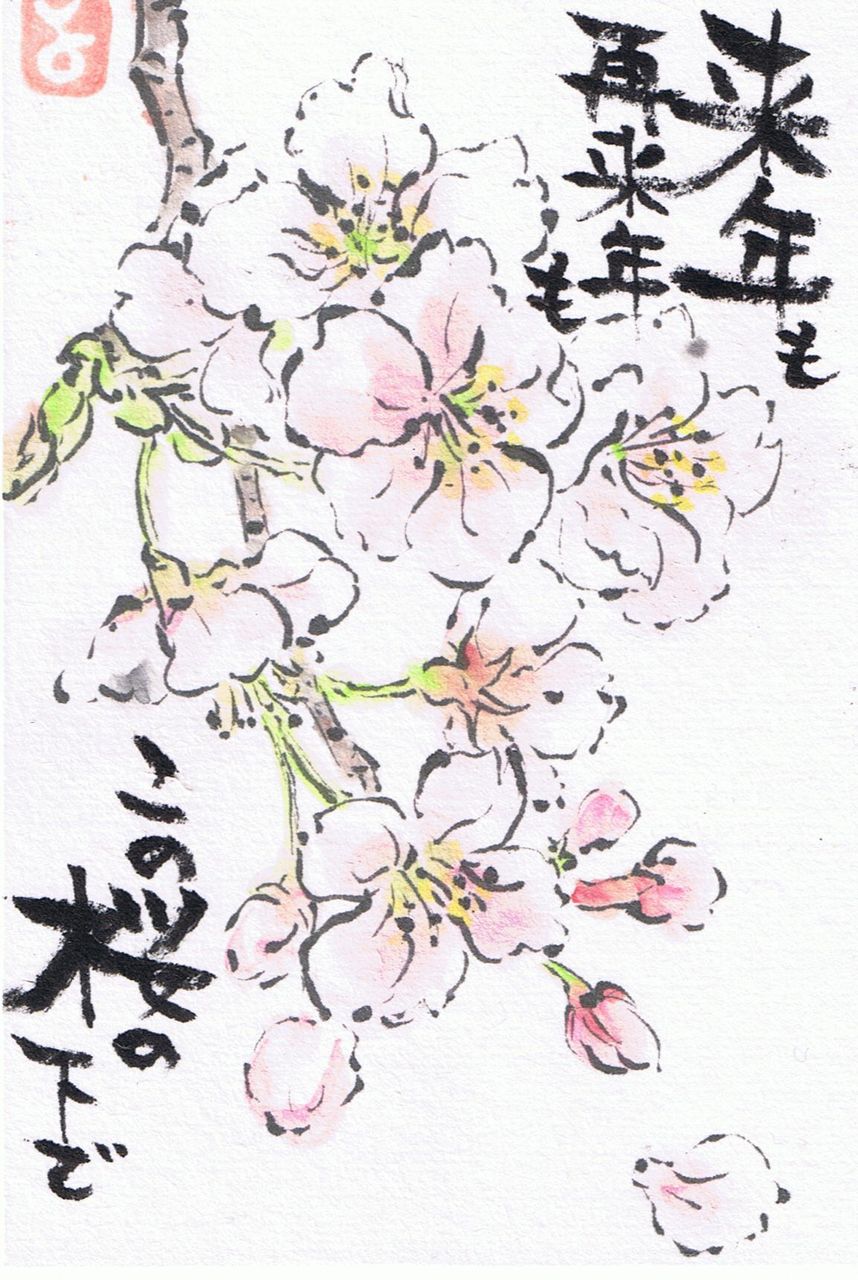 来年も
再来年も
この
桜の
下で
よ